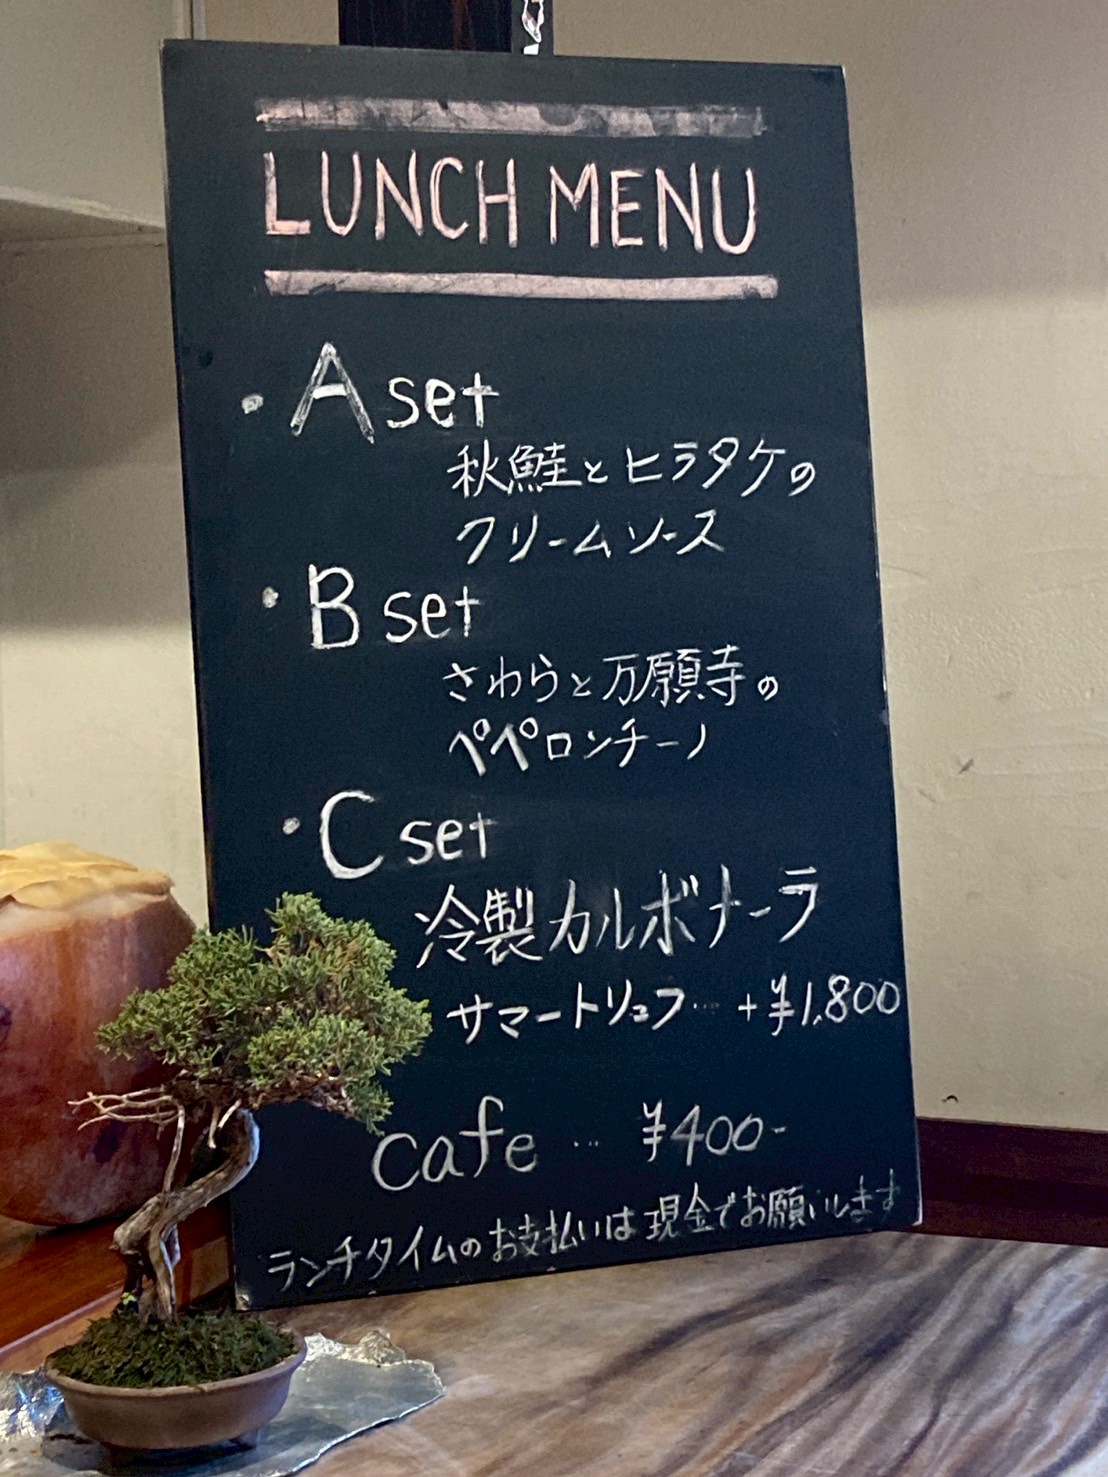 LUNCH MENU
・A set
秋鮭とヒラタケの
クリームソース
・B set
さわらと万願寺の
ペペロンチーノ
・C set
冷製カルボナーラ
サマートリュフ… +¥1,800
cafe … ¥400-
ランチタイムのお支払いは現金でお願いします